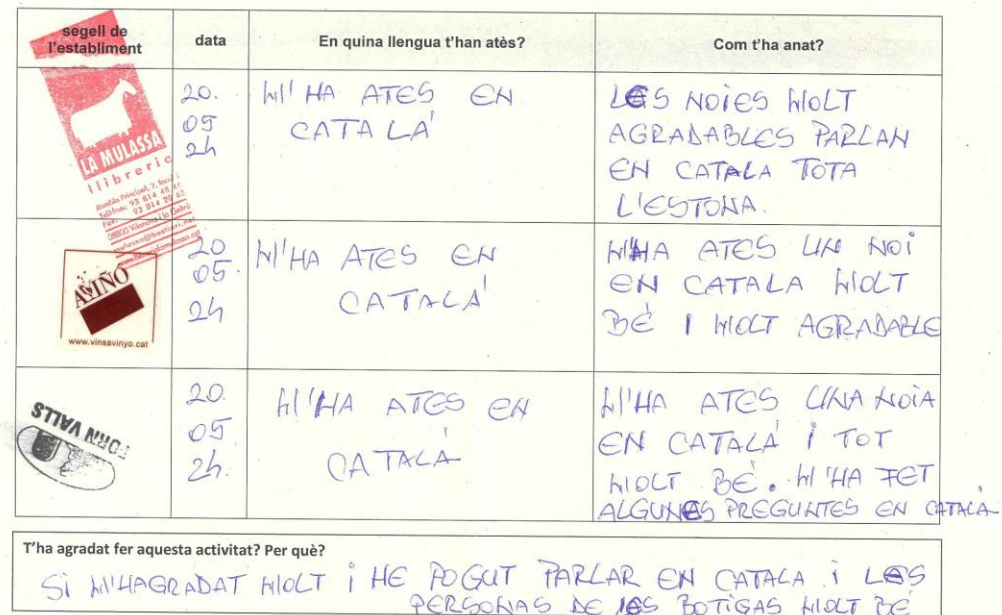 segell de
l'establiment
data
En quina llengua t'han atès?
Com t'ha anat?
LA MULASSA
llibreria
Rambla Principal, 2, 
Telèfon: 93 814 48 
Fax: 93 814 20 
08800 Vilanova i la Geltrú
20.
05
24
M'HA ATES EN
CATALÁ
LES NOIES MOLT
AGRADABLES PARLAN
EN CATALA TOTA
L'ESTONA.
AVINYO
www.vinsavinyo.cat
20
05.
24
M'HA ATES EN
CATALÁ
M'HA ATES UN NOI
EN CATALA MOLT
BÉ I MOLT AGRADABLE
FORN VALLS
20.
05
24.
M'HA ATES EN
CATALÁ
M'HA ATES UNA NOIA
EN CATALÁ I TOT
MOLT BÉ. M'HA FET
ALGUNES PREGUNTES EN CATALA
T'ha agradat fer aquesta activitat? Per què?
SI M'HAGRADAT MOLT I HE POGUT PARLAR EN CATALA I LES
PERSONAS DE LES BOTIGAS MOLT BÉ